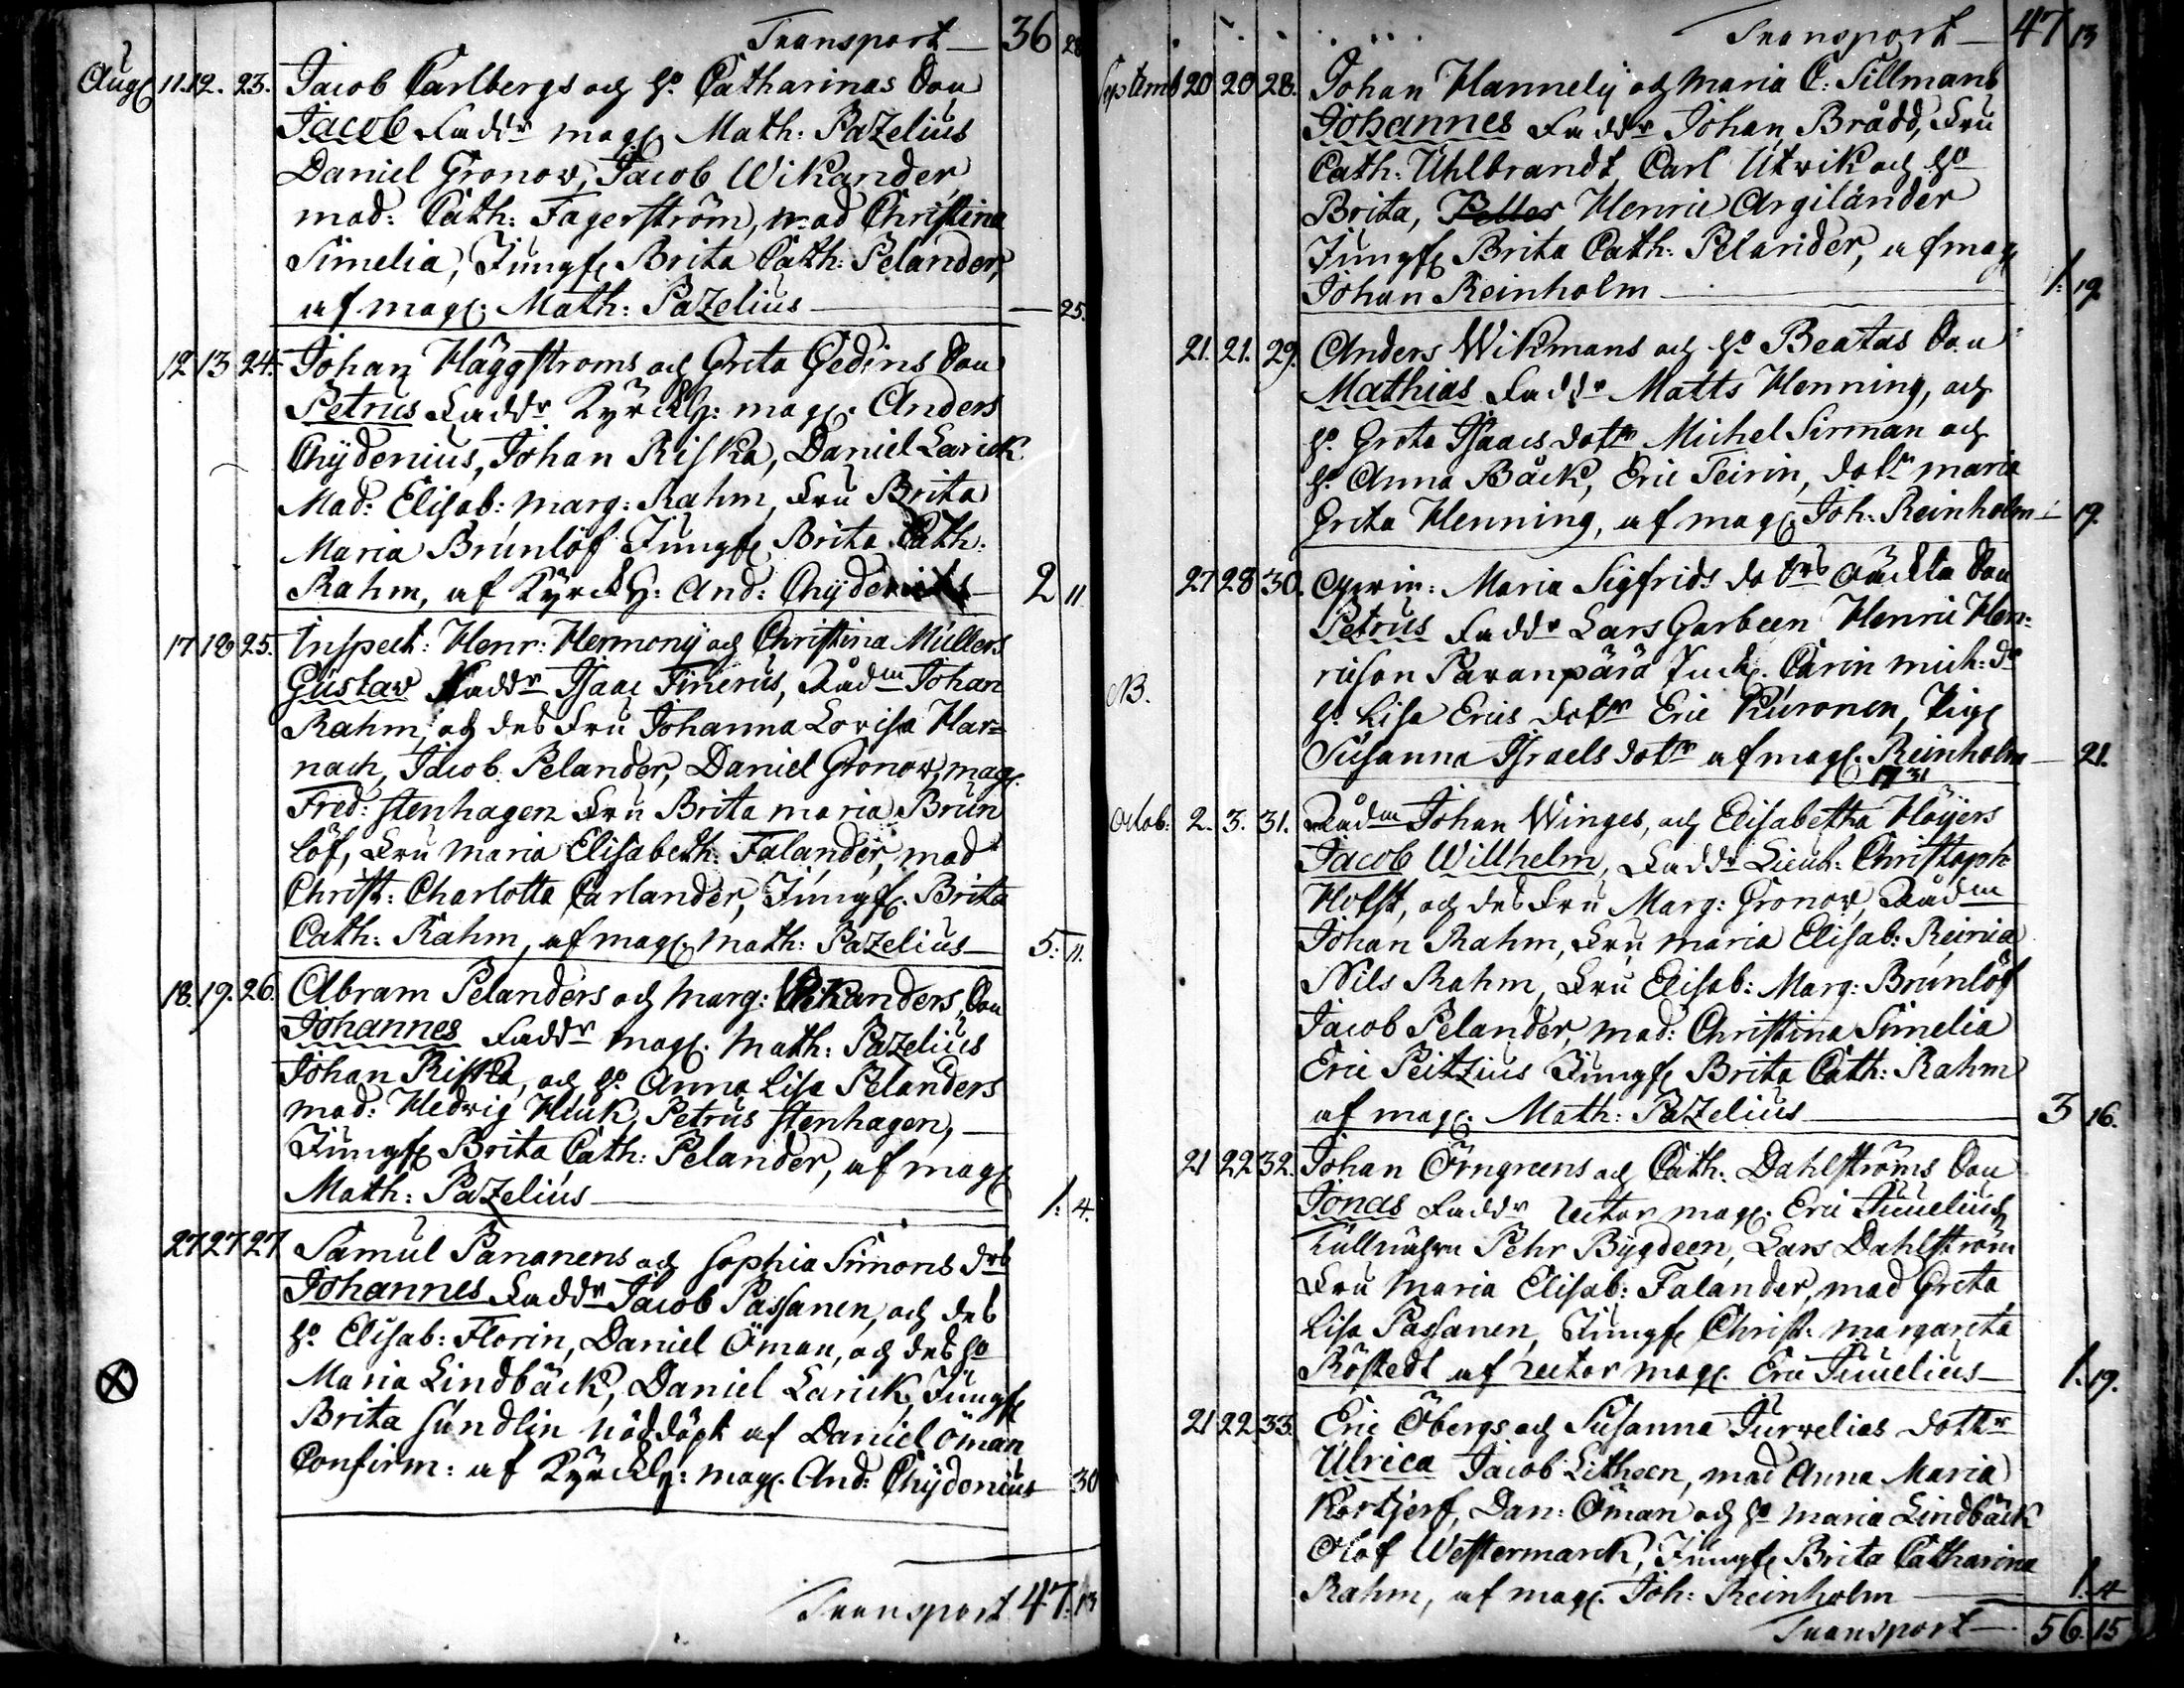 Transport — 36 28
Aug 11. 12. 23. Jacob Carlbergs och h: Catharinas Son
Jacob Faddr mag. Math: Pazelius
Daniel Gronow, Jacob Wikander
mad: Cath: Fagerström, mad Christina
Simelia, Jungf Brita Cath: Pelander,
af mag. Math: Pazelius — 25.
12 13 24. Johan Häggstroms och Greta Gedins Son
Petrus Faddr Kyrckh: mag. Anders
Chydenius, Johan Riska, Daniel Larick
Mad: Elisab: Marg: Rahm, Fru Brita
Maria Brunlöf Jungf Brita Cath:
Rahm, af Kyrckh: And: Chydenius — 2 11
17 18 25. Inspect: Henr: Hermony och Christina Müllers
Gustav Faddr Isaac Finerus, Rådm Johan
Rahm, och des Fru Johanna Lovisa Har=
nach, Jacob Pelander, Daniel Gronow, mag.
Fred: Stenhagen Fru Brita maria Brun
löf, Fru Maria Elisabeth: Falander, mad
Christ: Charlotta Carlander, Jungf. Brita
Cath: Rahm, af mag. Math: Pazelius — 5: 11.
18. 19. 26. Abram Pelanders och Marg: Wikanders, Son
Johannes Faddr mag. Math: Pazelius
Johan Riska, och h: Anna Lisa Pelanders
mad: Hedvig Huuk, Petrus Stenhagen, —
Jungf Brita Cath: Pelander, af mag
Math: Pazelius — 1: 4.
27 27 27 Samul Pananens och Sophia Simons drs
Johannes Faddr Jacob Passanen, och des
h: Elisab: Florin, Daniel Öman, och des h:
Maria Lindbäck, Daniel Larick, Jungf
Brita Sundlin nöddöpt af Daniel Öman
Confirm: af Kyrckh: mag. And: Chydenius — 30
Transport 47. 13
Transport — 47 13
Septemb 20 20 28. Johan Hannely och Maria C: Tillmans
Johannes Faddr Johan Brådd, Fru
Cath: Uhlbrandt Carl Utvik och h:
Brita, Henric Argilander
Jungf Brita Cath: Pelander, af mag
Johan Reinholm — 1: 19.
21. 21. 29. Anders Wikmans och h: Beatas Son
Mathias Faddr Matts Henning, och
h: Greta Isaacs dotr Michel Sirman och
h: Anna Bäck, Eric Teirin, dotr Maria
Greta Henning, af mag. Joh: Reinholm — 19.
27 28 30. Maria Sigfrids dotrs oäckta Son
Petrus Faddr Lars Garbeen Henric Hen:
ricson Paranpärä Carin Mich: dr
NB. h: Lisa Erics dotr Eric Kuronen, Pig.
Susanna Israels dotr af mag. Reinholm — 21.
17 31
Octob: 2. 3. 31. Rådm Johan Winges, och Elisabetha Höijers
Jacob Willhelm, Faddr Lieut: Christoph
Holst, och des Fru Marg: Gronow, Rådm
Johan Rahm, Fru Maria Elisab: Reinia
Nils Rahm, Fru Elisab: Marg: Brunlöf
Jacob Pelander, mad: Christina Simelia
Eric Peitzius Jungf Brita Cath: Rahm
af mag. Math: Pazelius — 3 16.
21 22 32. Johan Örngreens och Cath: Dahlströms Son
Jonas Faddr Rector mag. Eric Juvelius
Pehr Bygdeen, Lars Dahlström
Fru Maria Elisab: Falander, mad Greta
Lisa Passanen, Jungf Christ: Margareta
Röstedt af Rector mag. Eric Juvelius — 1. 19.
21 22 33. Eric Öbergs och Susanna Jurvelias dotter
Ulrica Jacob Litheen, mad Anna Maria
Kortjerf, Dan: Öman och h: Maria Lindbäck
Olof Westermarck, Jungf Brita Catharina
Rahm, af mag. Joh: Reinholm — 1. 4
Transport — 56. 15